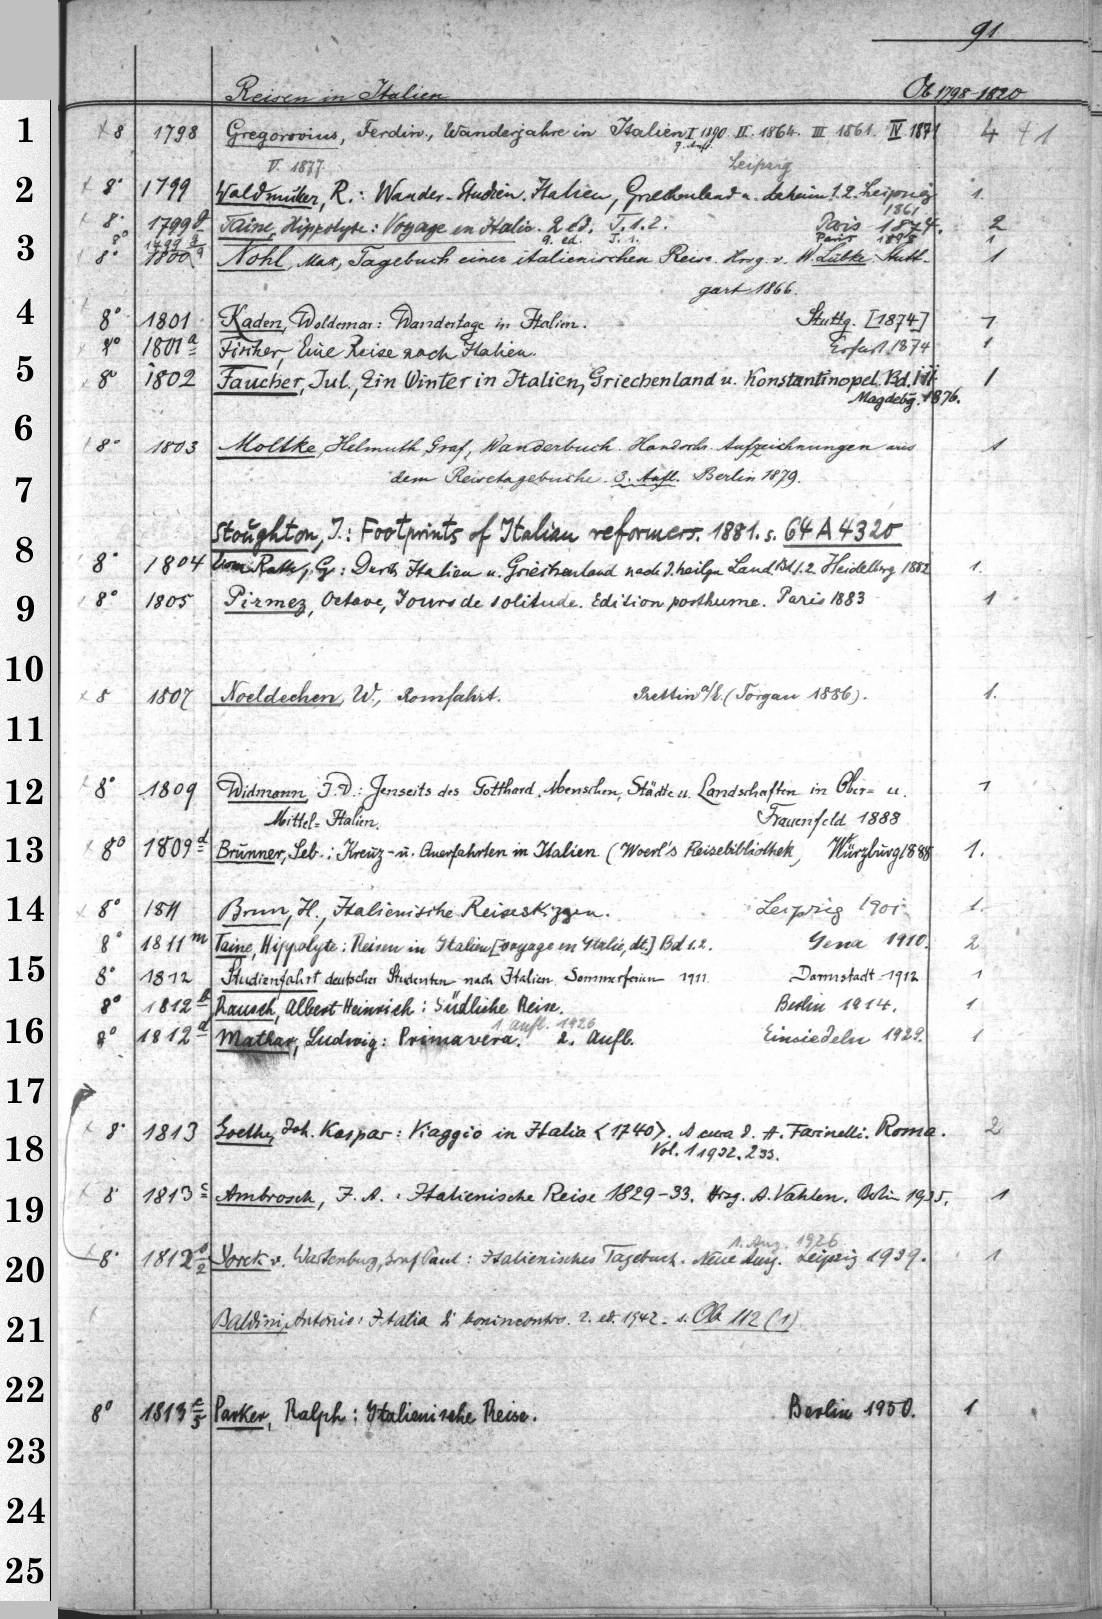 91
Reisen in Italien Ob 1798-1820
1 × 8 1798 Gregorovius, Ferdin., Wanderjahre in Italien I 1890. II. 1864. III 1861. IV 1871 4 + 1
7. Aufl.
V. 1877. Leipzig
2 × 8° 1799 Waldmüller, R.: Wander-Studien. Italien, Griechenland u. daheim 1.2. Leipzig 1.
1861
× 8° 1799 Taine, Hippolyte: Voyage en Italie. 2 éd. T. 1.2. Paris 1874. 2
8° 1799 9. ed. T. 1. Paris 1898 1
3 8° 1800 Nohl, Max, Tagebuch einer italienischen Reise. Hrsg. v. W. Lübke. Stutt- 1
gart 1866.
4 8° 1801 Kaden, Woldemar: Wandertage in Italien. Stuttg. [1874] 1
× 8° 1801 a Fischer, Eine Reise nach Italien. Erfurt 1874 1
5 × 8° 1802 Faucher, Jul., Ein Winter in Italien, Griechenland u. Konstantinopel. Bd. 1 1
Magdebg. 1876.
6 8° 1803 Moltke, Helmuth Graf, Wanderbuch. Handschr. Aufzeichnungen aus 1
7 dem Reisetagebuche. 3. Aufl. Berlin 1879.
Stoughton, J.: Footprints of Italian reformers. 1881. s. 64 A 4320
8 8° 1804 vom Rath, G.: Durch Italien u. Griechenland nach d. heilgn Land Bd 1.2 Heidelberg 1882 1.
9 × 8° 1805 Pirmez, Octave, Jours de solitude. Edition posthume. Paris 1883 1
10
× 8 1807 Noeldechen, W., Romfahrt. Prettin a/E. (Torgau 1886). 1.
11
12 × 8° 1809 Widmann, J. V.: Jenseits des Gotthard. Menschen, Städte u. Landschaften in Ober= u. 1
Mittel=Italien. Frauenfeld 1888
13 × 8° 1809 d Brunner, Seb.: Kreuz- u. Querfahrten in Italien (Woerl's Reisebibliothek) Würzburg 1888 1.
14 × 8° 1811 Brun, H., Italienische Reiseskizzen. Leipzig 1901. 1.
8° 1811 m Taine, Hippolyte: Reisen in Italien [voyage en Italie, dt.] Bd 1.2. Jena 1910. 2
15 8° 1812 Studienfahrt deutscher Studenten nach Italien. Sommerferien 1911. Darmstadt 1912 1
8° 1812 Rausch, Albert Heinrich: Südliche Reise. Berlin 1914. 1
1. Aufl. 1926
16 8° 1812 d Mathar, Ludwig: Primavera. 2. Aufl. Einsiedeln 1929. 1
17
18 × 8° 1813 Goethe, Joh. Kaspar: Viaggio in Italia <1740>. A cura d. A. Farinelli. Roma. 2
Vol. 1 1932. 2 33.
19 × 8° 1813 c Ambrosch, J. A.: Italienische Reise 1829-33. Hrsg. A. Vahlen. Berlin 1935. 1
1. Ausg. 1926
20 × 8° 1812 Yorck v. Wartenburg, Graf Paul: Italienisches Tagebuch. Neue Ausg. Leipzig 1939. 1
21 Baldini, Antonio: Italia di bonincontro. 2. ed. 1942. s. Ob 112 (1)
22 8° 1813 e/5 Parker, Ralph: Italienische Reise. Berlin 1950. 1
23
24
25